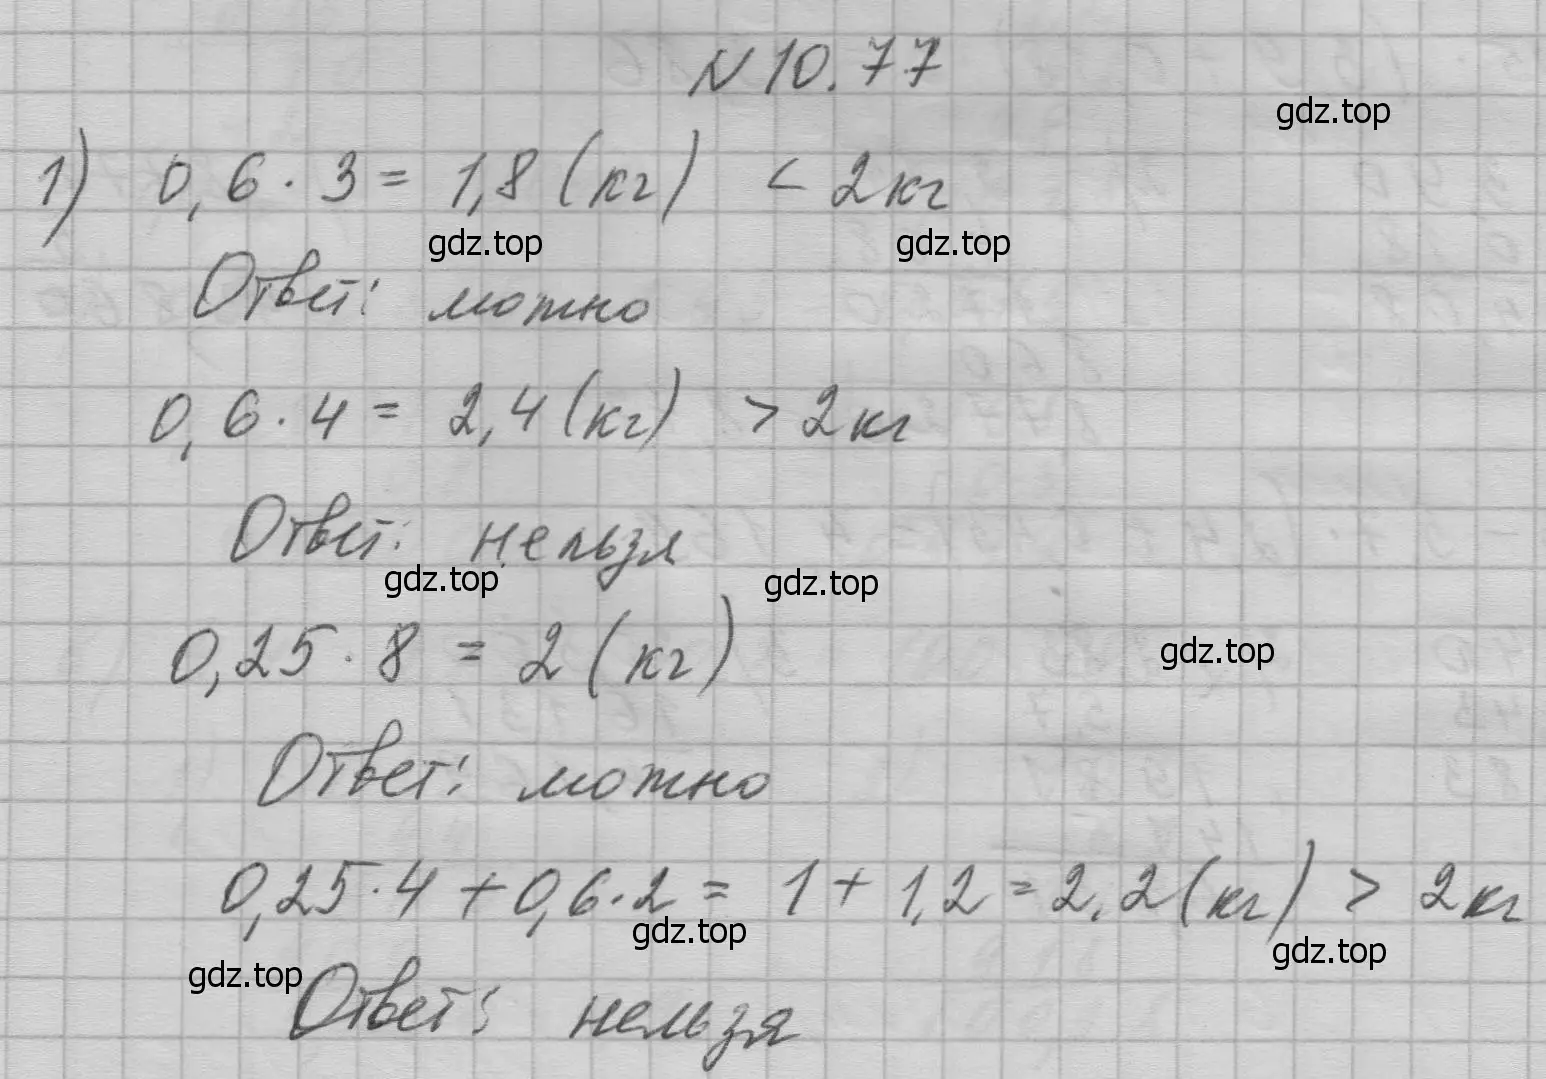 N 10.77
gdz.top
1) 0,6 · 3 = 1,8 (кг) < 2 кг
gdz.top gdz.top
Ответ: можно
0,6 · 4 = 2,4 (кг) > 2 кг
Ответ: нельзя
gdz.top gdz.top
0,25 · 8 = 2 (кг)
gdz.top
Ответ: можно
0,25 · 4 + 0,6 · 2 = 1 + 1,2 = 2,2 (кг) > 2 кг
gdz.top gdz.top
gdz.top
Ответ: нельзя